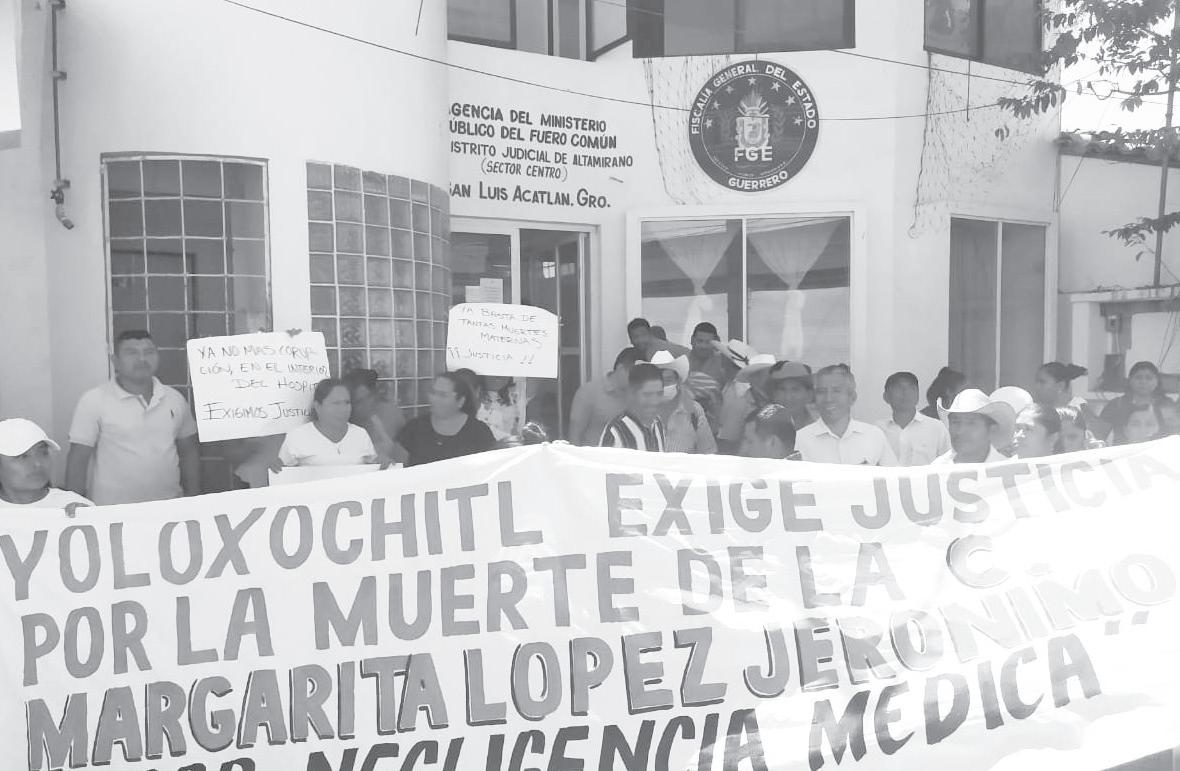 FISCALIA GENERAL DEL ESTADO
FGE
GUERRERO
GENCIA DEL MINISTERIO
ÚBLICO DEL FUERO COMÚN
ISTRITO JUDICIAL DE ALTAMIRANO
(SECTOR CENTRO)
SAN LUIS ACATLAN. GRO.
YA BASTA DE
TANTAS MUERTES
MATERNAS
¡¡ JUSTICIA !!
YA NO MAS CORUP
CIÓN, EN EL INTERIOR
DEL HOSPIT
EXIGIMOS JUSTIC
YOLOXOCHITL EXIGE JUSTICIA
POR LA MUERTE DE LA C.
MARGARITA LOPEZ JERONIMO
POR NEGLIGENCIA MEDICA"